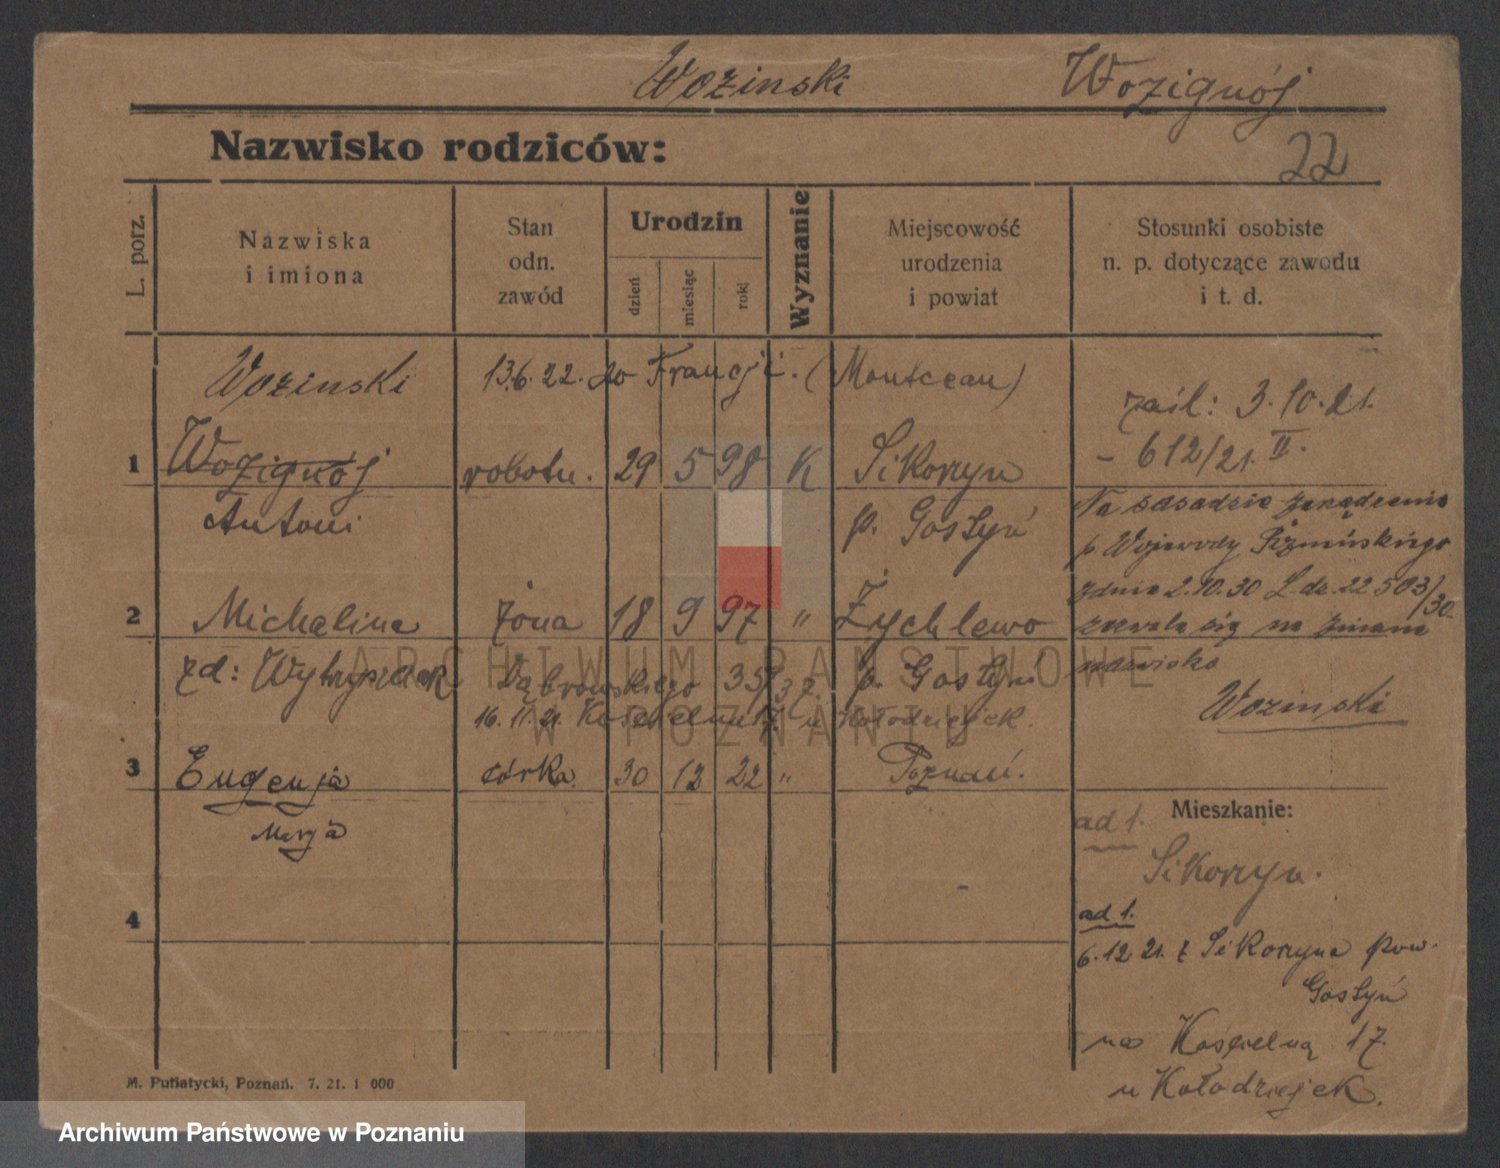 Wozinski Wozignój
Nazwisko rodziców:
22
L. porz.
Nazwiska
i imiona
Stan
odn.
zawód
Urodzin
dzień
miesiąc
rok
Wyznanie
Miejscowość
urodzenia
i powiat
Stosunki osobiste
n. p. dotyczące zawodu
i t. d.
Wozinski 13.6.22. do Francji. (Montceau)
zaśl: 3.10.21.
- 612/21. II.
1 Wozignój robotn. 29 5 98 K Sikorzyn
Antoni p. Gostyń
Na zasadzie zarządzenia
p Wojewody Pozmińskiego
z dnia 2.10.30 L. dz. 22 503/30.
zezwala się na zmianę
nazwiska
Wozinski
2 Michalina żona 18 9 97 " Żychlewo
zd: Dąbrowskiego 35/37. p. Gostyń
16.11.21. Kościelna 17. u Kołodziejek.
3 Eugenja córka 30 12 22 " Poznań.
Marja
Mieszkanie:
ad 1.
Sikorzyn.
4
ad 1.
6.12.21. z Sikorzyna pow.
Gostyń
na Kościelną 17.
u Kołodziejek.
M. Putiatycki, Poznań. 7. 21. 1 000
ARCHIWUM PAŃSTWOWE
W POZNANIU
Archiwum Państwowe w Poznaniu